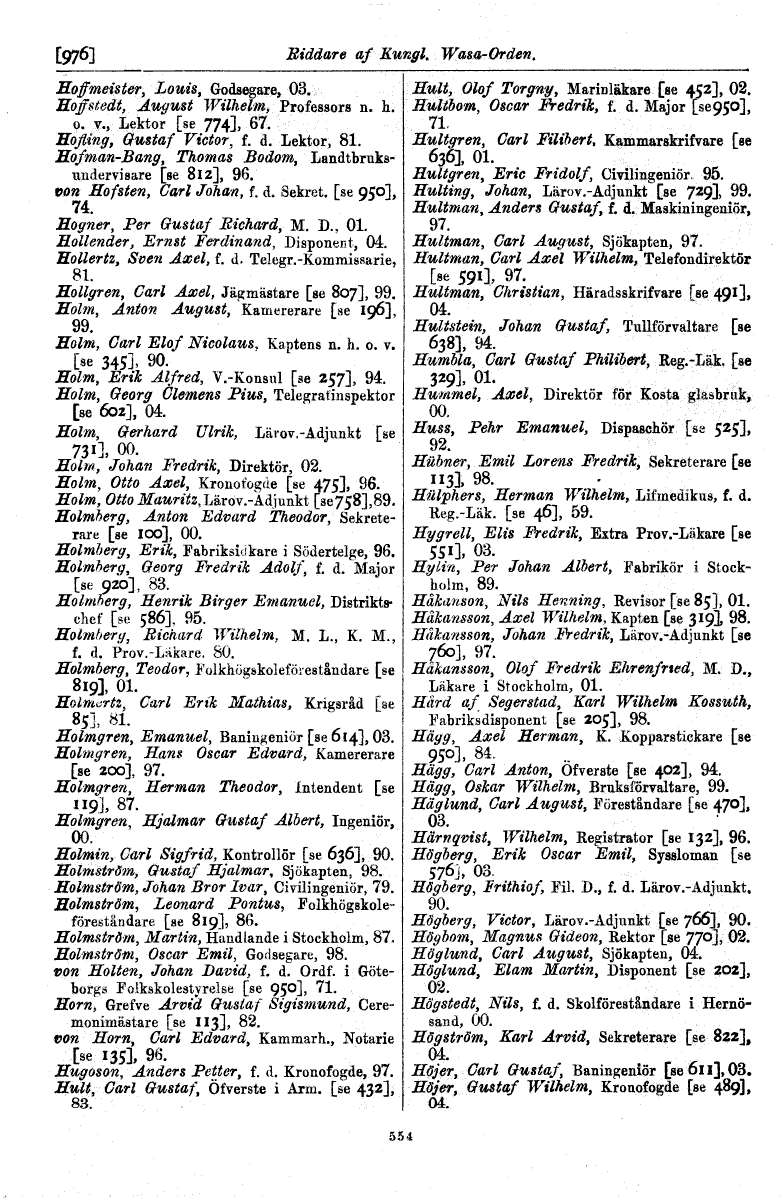 [976] Riddare af Kungl. Wasa-Orden.
Hoffmeister, Louis, Godsegare, 03.
Hoffstedt, August Wilhelm, Professors n. h.
o. v., Lektor [se 774], 67.
Hofling, Gustaf Victor, f. d. Lektor, 81.
Hofman-Bang, Thomas Bodom, Landtbruks-
undervisare [se 812], 96.
von Hofsten, Carl Johan, f. d. Sekret. [se 950],
74.
Hogner, Per Gustaf Richard, M. D., 01.
Hollender, Ernst Ferdinand, Disponent, 04.
Hollertz, Sven Axel, f. d. Telegr.-Kommissarie,
81.
Hollgren, Carl Axel, Jägmästare [se 807], 99.
Holm, Anton August, Kamererare [se 196],
99.
Holm, Carl Elof Nicolaus, Kaptens n. h. o. v.
[se 345], 90.
Holm, Erik Alfred, V.-Konsul [se 257], 94.
Holm, Georg Clemens Pius, Telegrafinspektor
[se 602], 04.
Holm, Gerhard Ulrik, Lärov.-Adjunkt [se
731], 00.
Holm, Johan Fredrik, Direktör, 02.
Holm, Otto Axel, Kronofogde [se 475], 96.
Holm, Otto Mauritz, Lärov.-Adjunkt [se 758], 89.
Holmberg, Anton Edvard Theodor, Sekrete-
rare [se 100], 00.
Holmberg, Erik, Fabriksidkare i Södertelge, 96.
Holmberg, Georg Fredrik Adolf, f. d. Major
[se 920], 83.
Holmberg, Henrik Birger Emanuel, Distrikts-
chef [se 586], 95.
Holmberg, Richard Wilhelm, M. L., K. M.,
f. d. Prov.-Läkare, 80.
Holmberg, Teodor, Folkhögskoleföreståndare [se
819], 01.
Holmertz, Carl Erik Mathias, Krigsråd [se
85], 81.
Holmgren, Emanuel, Baningeniör [se 614], 03.
Holmgren, Hans Oscar Edvard, Kamererare
[se 200], 97.
Holmgren, Herman Theodor, Intendent [se
119], 87.
Holmgren, Hjalmar Gustaf Albert, Ingeniör,
00.
Holmin, Carl Sigfrid, Kontrollör [se 636], 90.
Holmström, Gustaf Hjalmar, Sjökapten, 98.
Holmström, Johan Bror Ivar, Civilingeniör, 79.
Holmström, Leonard Pontus, Folkhögskole-
föreståndare [se 819], 86.
Holmström, Martin, Handlande i Stockholm, 87.
Holmström, Oscar Emil, Godsegare, 98.
von Holten, Johan David, f. d. Ordf. i Göte-
borgs Folkskolestyrelse [se 950], 71.
Horn, Grefve Arvid Gustaf Sigismund, Cere-
monimästare [se 113], 82.
von Horn, Carl Edvard, Kammarh., Notarie
[se 135], 96.
Hugoson, Anders Petter, f. d. Kronofogde, 97.
Hult, Carl Gustaf, Öfverste i Arm. [se 432],
83.
Hult, Olof Torgny, Marinläkare [se 452], 02.
Hultbom, Oscar Fredrik, f. d. Major [se 950],
71.
Hultgren, Carl Filibert, Kammarskrifvare [se
636], 01.
Hultgren, Eric Fridolf, Civilingeniör. 95.
Hulting, Johan, Lärov.-Adjunkt [se 729], 99.
Hultman, Anders Gustaf, f. d. Maskiningeniör,
97.
Hultman, Carl August, Sjökapten, 97.
Hultman, Carl Axel Wilhelm, Telefondirektör
[se 591], 97.
Hultman, Christian, Häradsskrifvare [se 491],
04.
Hultstein, Johan Gustaf, Tullförvaltare [se
638], 94.
Humbla, Carl Gustaf Philibert, Reg.-Läk. [se
329], 01.
Hummel, Axel, Direktör för Kosta glasbruk,
00.
Huss, Pehr Emanuel, Dispaschör [se 525],
92.
Hübner, Emil Lorens Fredrik, Sekreterare [se
113], 98.
Hülphers, Herman Wilhelm, Lifmedikus, f. d.
Reg.-Läk. [se 46], 59.
Hygrell, Elis Fredrik, Extra Prov.-Läkare [se
551], 03.
Hylin, Per Johan Albert, Fabrikör i Stock-
holm, 89.
Håkanson, Nils Henning, Revisor [se 85], 01.
Håkansson, Axel Wilhelm, Kapten [se 319], 98.
Håkansson, Johan Fredrik, Lärov.-Adjunkt [se
760], 97.
Håkansson, Olof Fredrik Ehrenfried, M. D.,
Läkare i Stockholm, 01.
Hård af Segerstad, Karl Wilhelm Kossuth,
Fabriksdisponent [se 205], 98.
Hägg, Axel Herman, K. Kopparstickare [se
950], 84.
Hägg, Carl Anton, Öfverste [se 402], 94.
Hägg, Oskar Wilhelm, Bruksförvaltare, 99.
Häglund, Carl August, Föreståndare [se 470],
03.
Härnqvist, Wilhelm, Registrator [se 132], 96.
Högberg, Erik Oscar Emil, Syssloman [se
576], 03.
Högberg, Frithiof, Fil. D., f. d. Lärov.-Adjunkt,
90.
Högberg, Victor, Lärov.-Adjunkt [se 766], 90.
Högbom, Magnus Gideon, Rektor [se 770], 02.
Höglund, Carl August, Sjökapten, 04.
Höglund, Elam Martin, Disponent [se 202],
02.
Högstedt, Nils, f. d. Skolföreståndare i Hernö-
sand, 00.
Högström, Karl Arvid, Sekreterare [se 822],
04.
Höjer, Carl Gustaf, Baningeniör [se 611], 03.
Höjer, Gustaf Wilhelm, Kronofogde [se 489],
04.
554